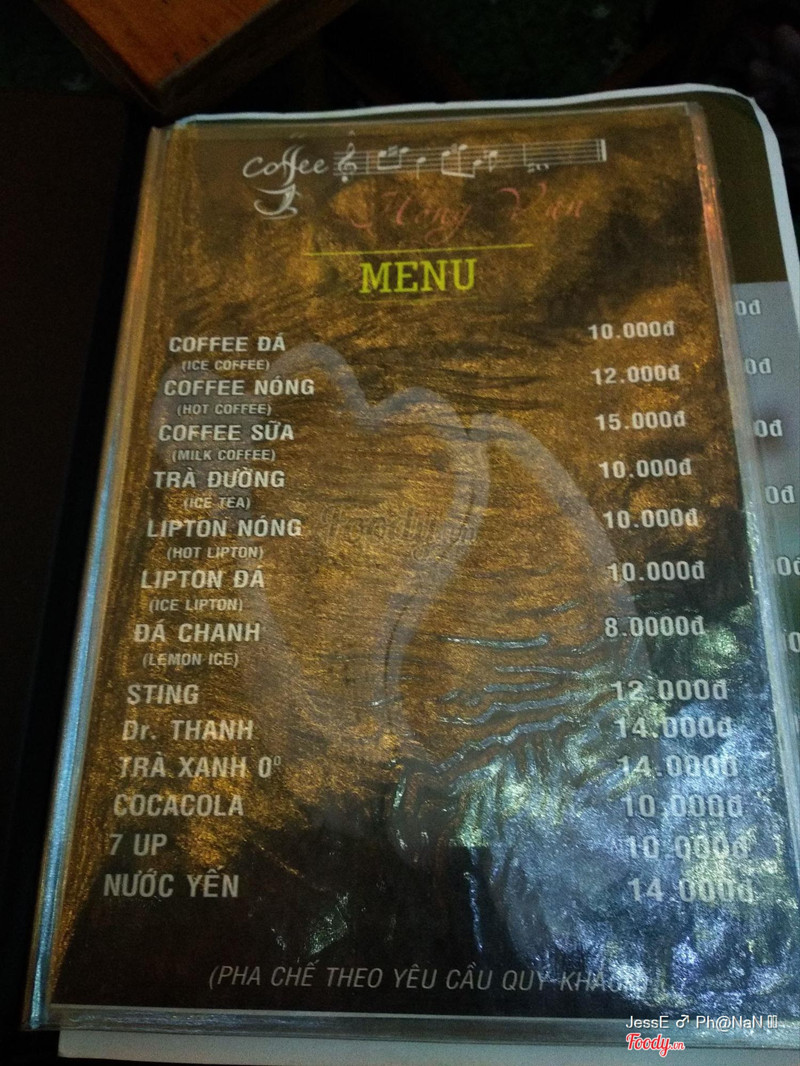 Coffee
Hồng Vân
MENU
COFFEE ĐÁ 10.000đ
(ICE COFFEE)
COFFEE NÓNG 12.000đ
(HOT COFFEE)
COFFEE SỮA 15.000đ
(MILK COFFEE)
TRÀ ĐƯỜNG 10.000đ
(ICE TEA)
LIPTON NÓNG 10.000đ
(HOT LIPTON)
LIPTON ĐÁ 10.000đ
(ICE LIPTON)
ĐÁ CHANH 8.0000đ
(LEMON ICE)
STING 12.000đ
Dr. THANH 14.000đ
TRÀ XANH 0º 14.000đ
COCACOLA 10.000đ
7 UP 10.000đ
NƯỚC YẾN 14.000đ
(PHA CHẾ THEO YÊU CẦU QUÝ KHÁ
Foody.vn
JessE ♂ Ph@NaN
Foody.vn